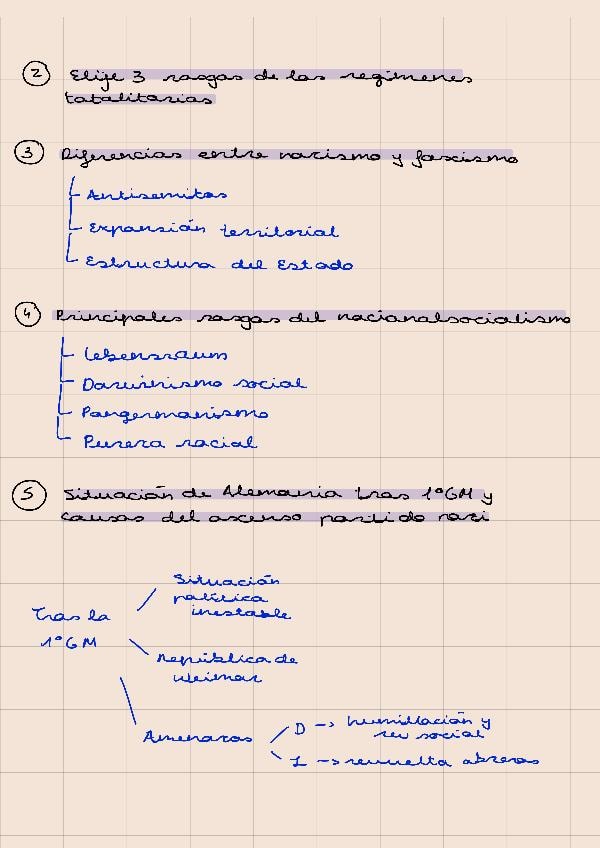 2 Elije 3 rasgos de los regímenes
totalitarios
3 Diferencias entre nazismo y fascismo
Antisemitas
Expansión territorial
Estructura del Estado
4 Principales rasgos del nacionalsocialismo
Lebensraum
Darwinismo social
Pangermanismo
Pureza racial
5 Situación de Alemania tras 1ºGM y
causas del ascenso partido nazi
Tras la
1ºGM
Situación
política
inestable
República de
Weimar
Amenazas
D -> humillación y
rev social
I -> revuelta obreros